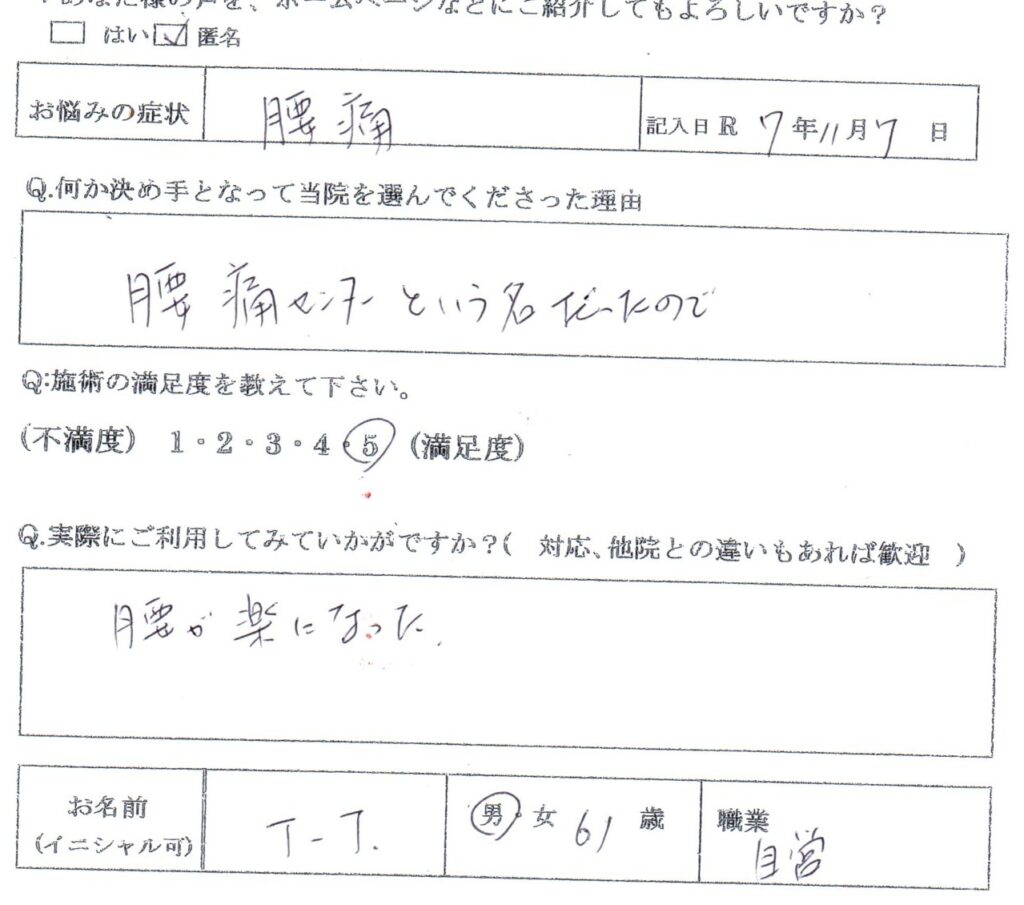 あなた様の声を、ホームページなどにご紹介してもよろしいですか？
はい 匿名
お悩みの症状 腰痛 記入日 R 7年11月7日
Q.何か決め手となって当院を選んでくださった理由
腰痛センターという名だったので
Q:施術の満足度を教えて下さい。
(不満度) 1・2・3・4・5 (満足度)
Q.実際にご利用してみていかがですか？( 対応、他院との違いもあれば歓迎 )
腰が楽になった.
お名前 (イニシャル可) T-T. 男・女 61 歳 職業 自営